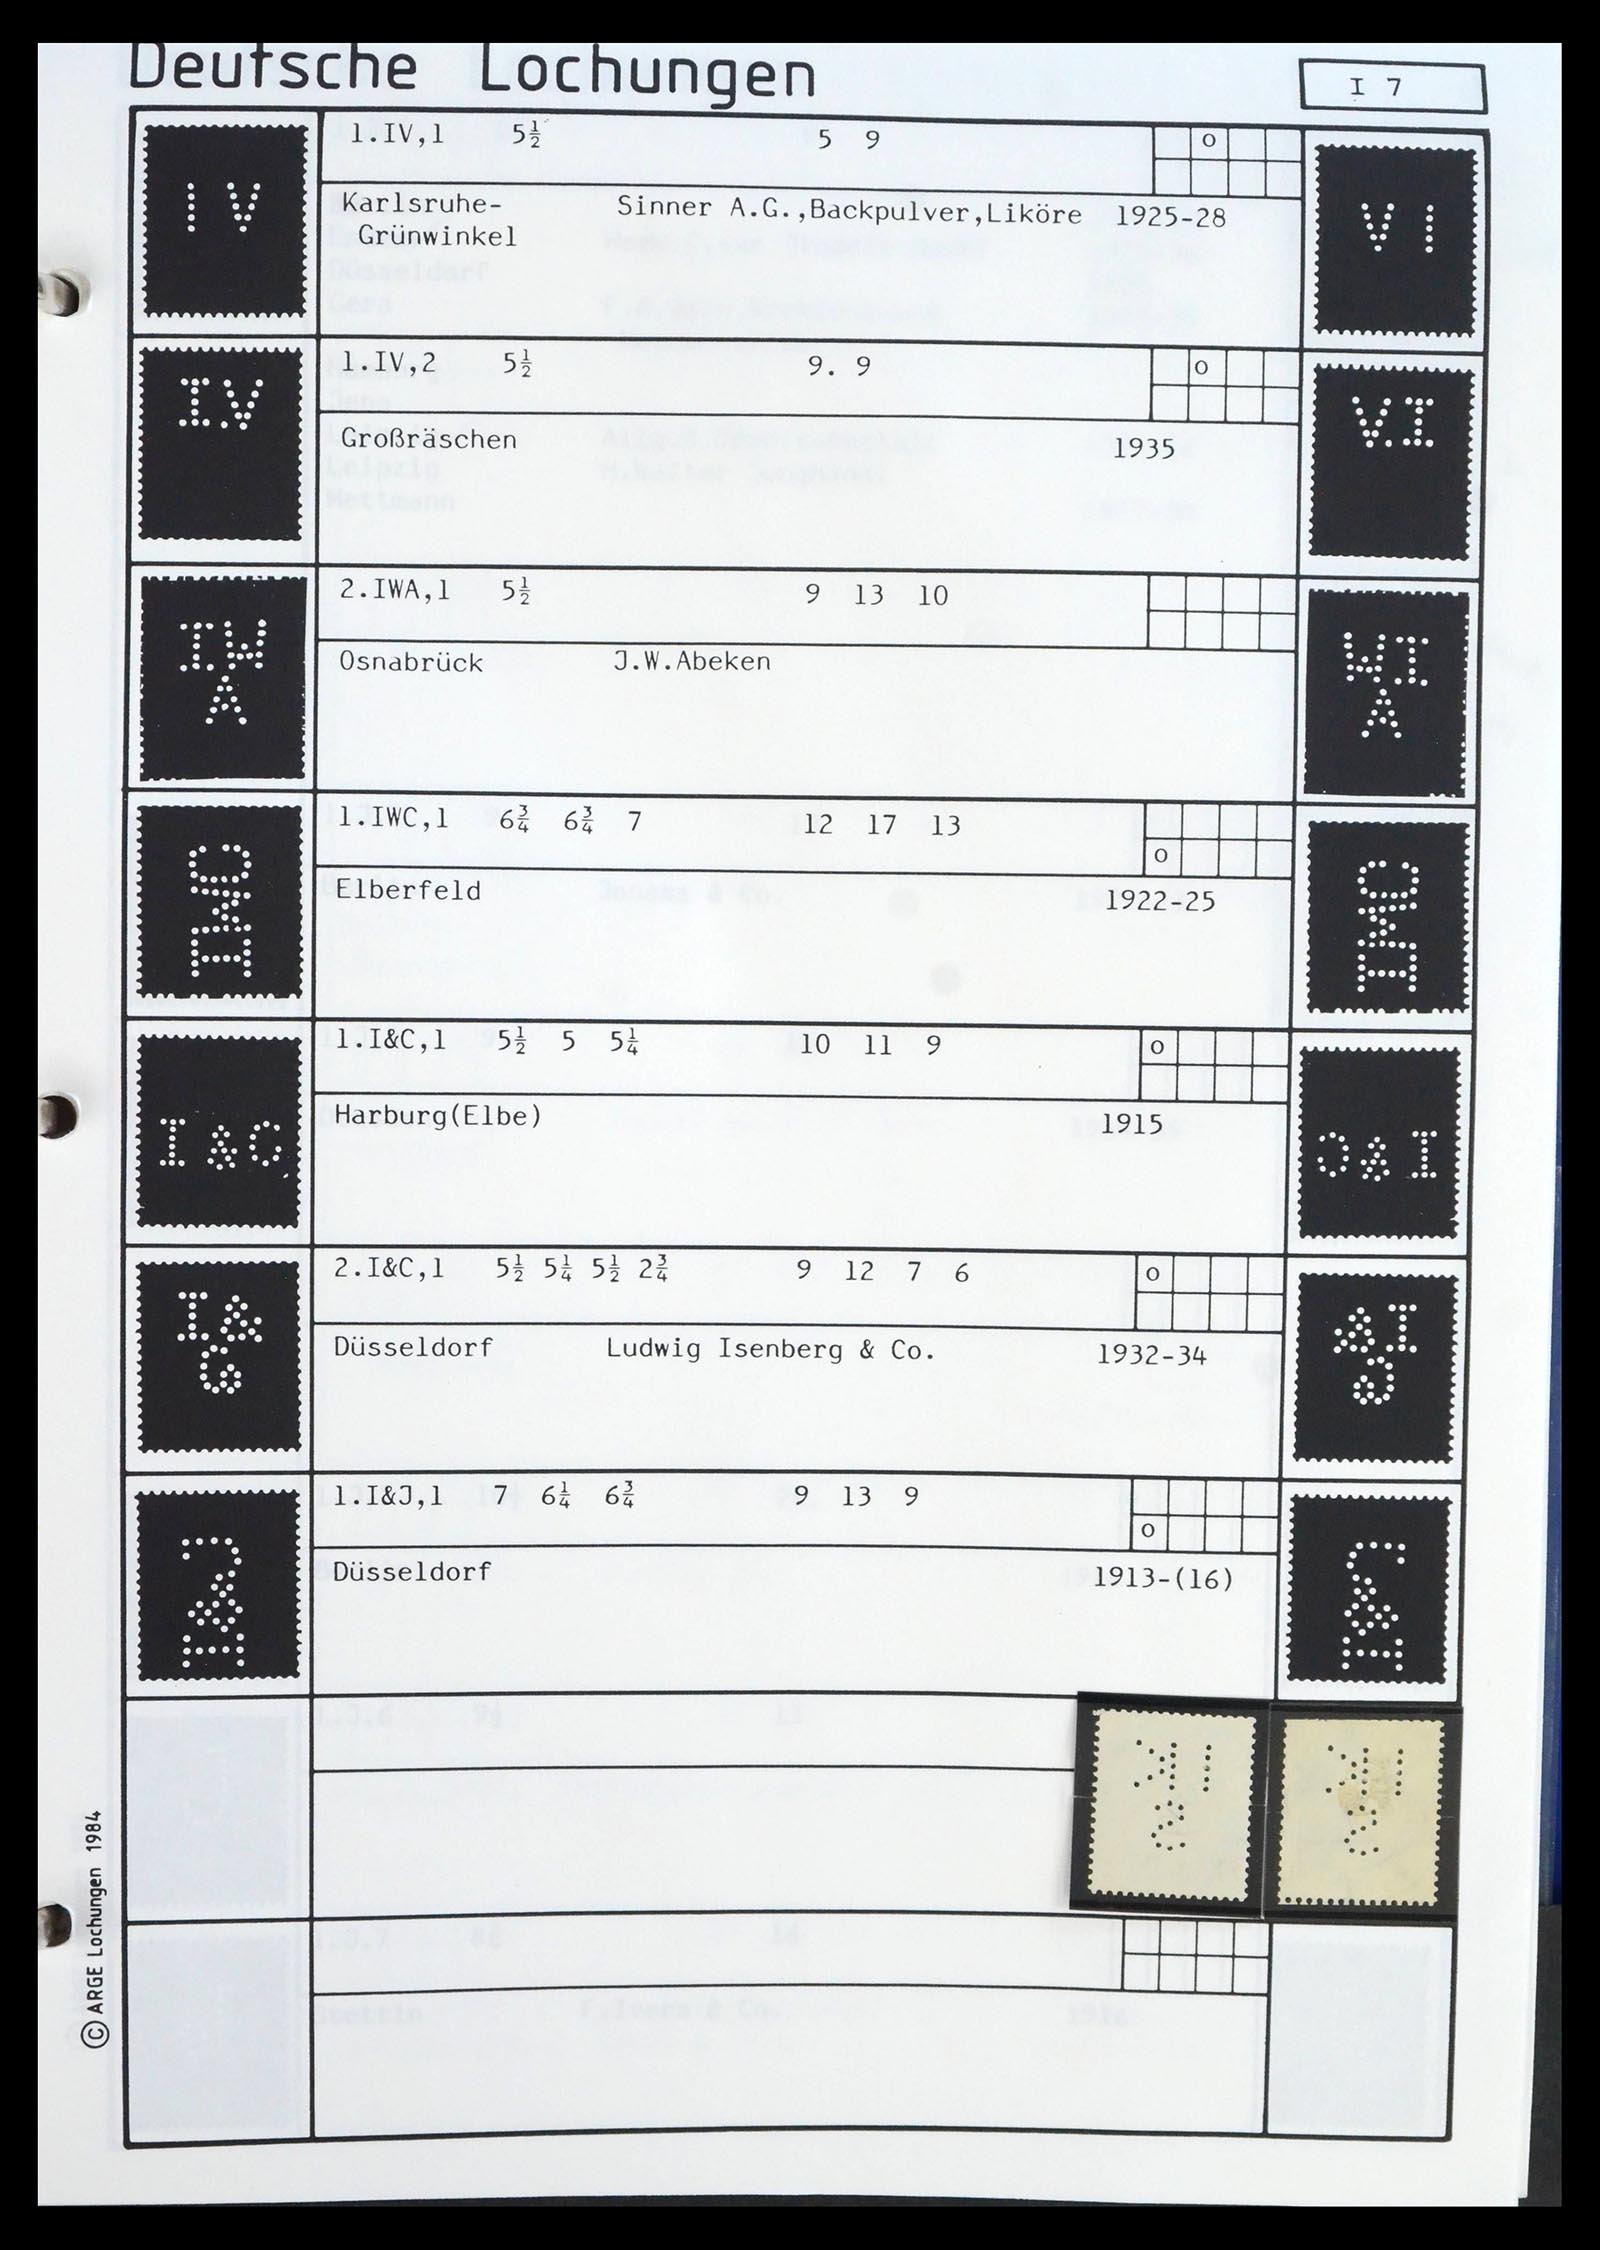 Deutsche Lochungen
I 7
IV
1.IV,1 5½ 5 9 o
VI
Karlsruhe- Sinner A.G.,Backpulver,Liköre 1925-28
Grünwinkel
IV
1.IV,2 5½ 9. 9 o
VI
Großräschen 1935
IW
A
2.IWA,1 5½ 9 13 10
WI
A
Osnabrück J.W.Abeken
IWC
1.IWC,1 6¾ 6¾ 7 12 17 13
o
Elberfeld 1922-25
I&C
1.I&C,1 5½ 5 5¼ 10 11 9 o
Harburg(Elbe) 1915
I&
C
2.I&C,1 5½ 5¼ 5½ 2¾ 9 12 7 6 o
Düsseldorf Ludwig Isenberg & Co. 1932-34
I&J
1.I&J,1 7 6¼ 6¾ 9 13 9
o
Düsseldorf 1913-(16)
© ARGE Lochungen 1984